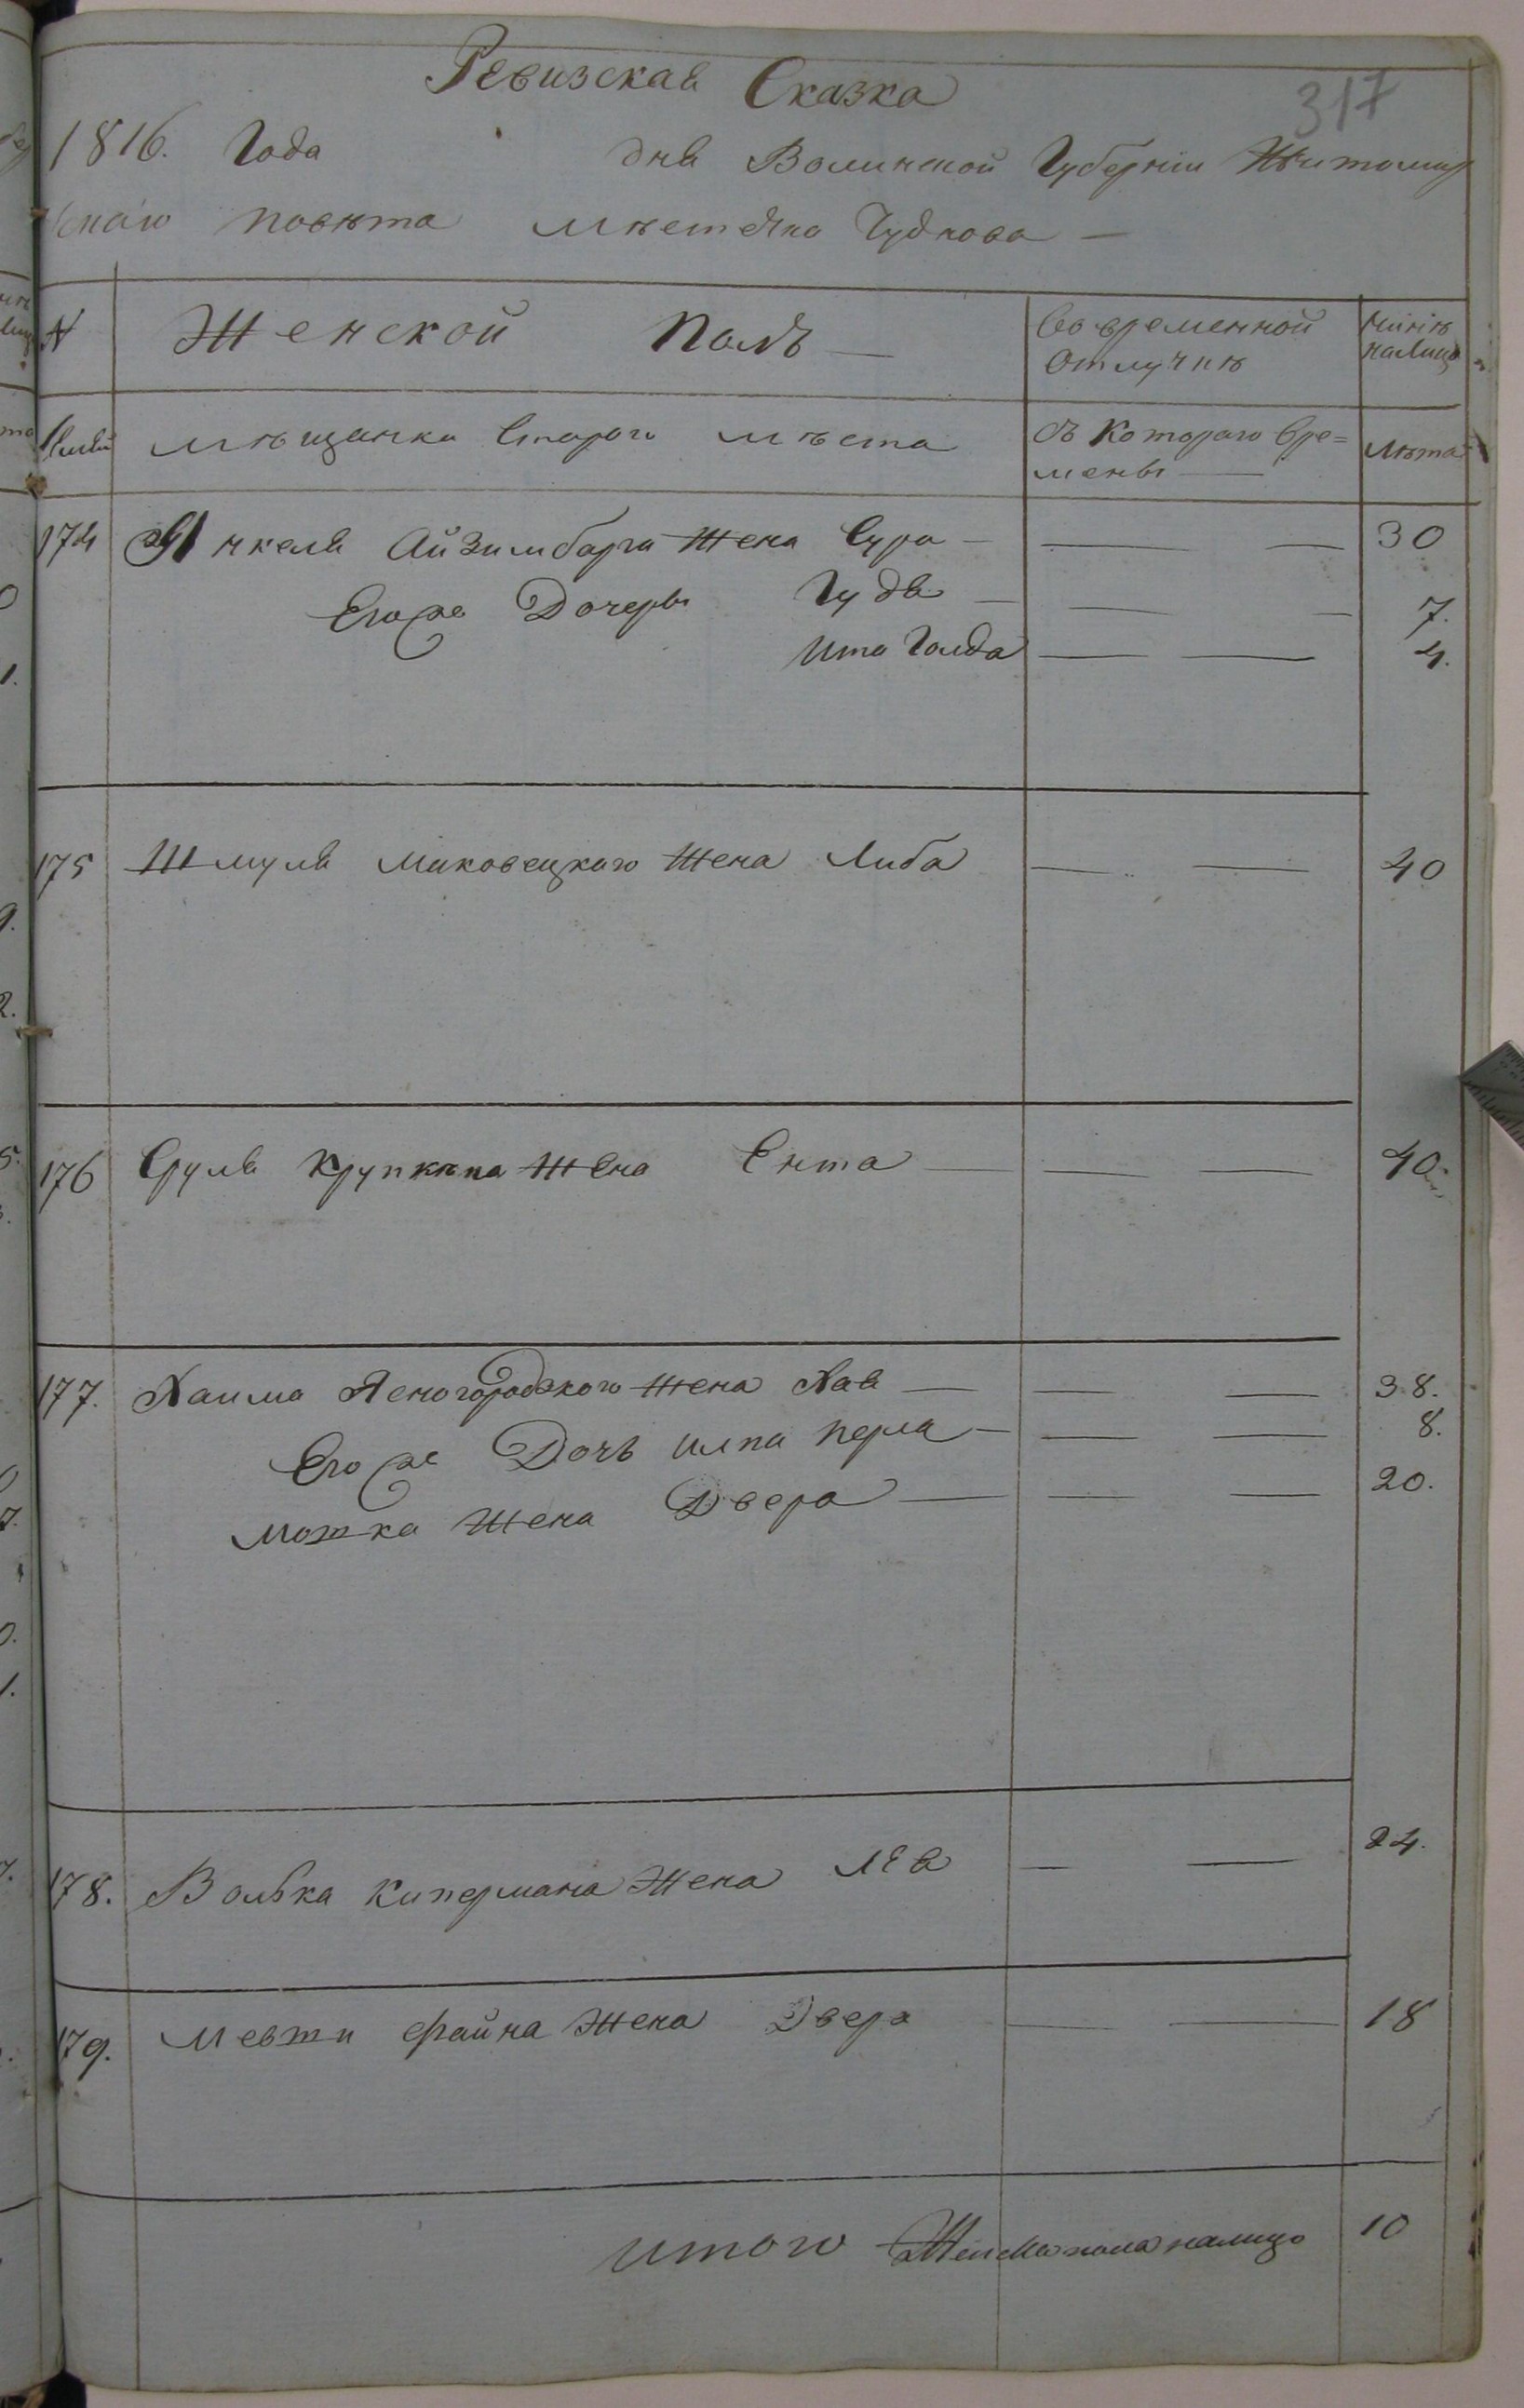 Ревизская Сказка
317
1816. Года дня Волинской Губерніи Житомир
скаго повѣта мѣстечка Чуднова —
№ Женской Полъ — Во временной отлучкѣ нинѣ налицо
семьи мѣщанки Старого мѣста съ Котораго вре=
мены — лѣта
174 Янкеля Айзимбарга Жена Сура — 30
Егоже Дочеры Гудя — 7.
Ита Голда — 4.
175 Шмуля Маковецкаго Жена Либа — 40
176 Сруля Крупника Жена Ента — 40.
177. Хаима Ясногородзкого Жена Хая — 38.
Егоже Дочь Ципа перла — 8.
Мошка Жена Двера — 20.
178. Волька Кипермана Жена Лея — 24.
179. Файна Жена Двера — 18
итого Женска пола налицо 10